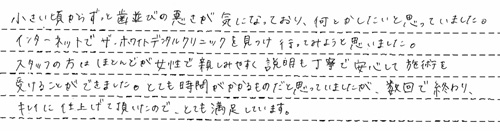 小さい頃からずっと歯並びの悪さが気になっており、何とかしたいと思っていました。
インターネットでザ・ホワイトデンタルクリニックを見つけ行ってみようと思いました。
スタッフの方はほとんどが女性で親しみやすく説明も丁寧で安心して施術を
受けることができました。とても時間がかかるものだと思っていましたが、数回で終わり、
キレイに仕上げて頂いたので、とても満足しています。